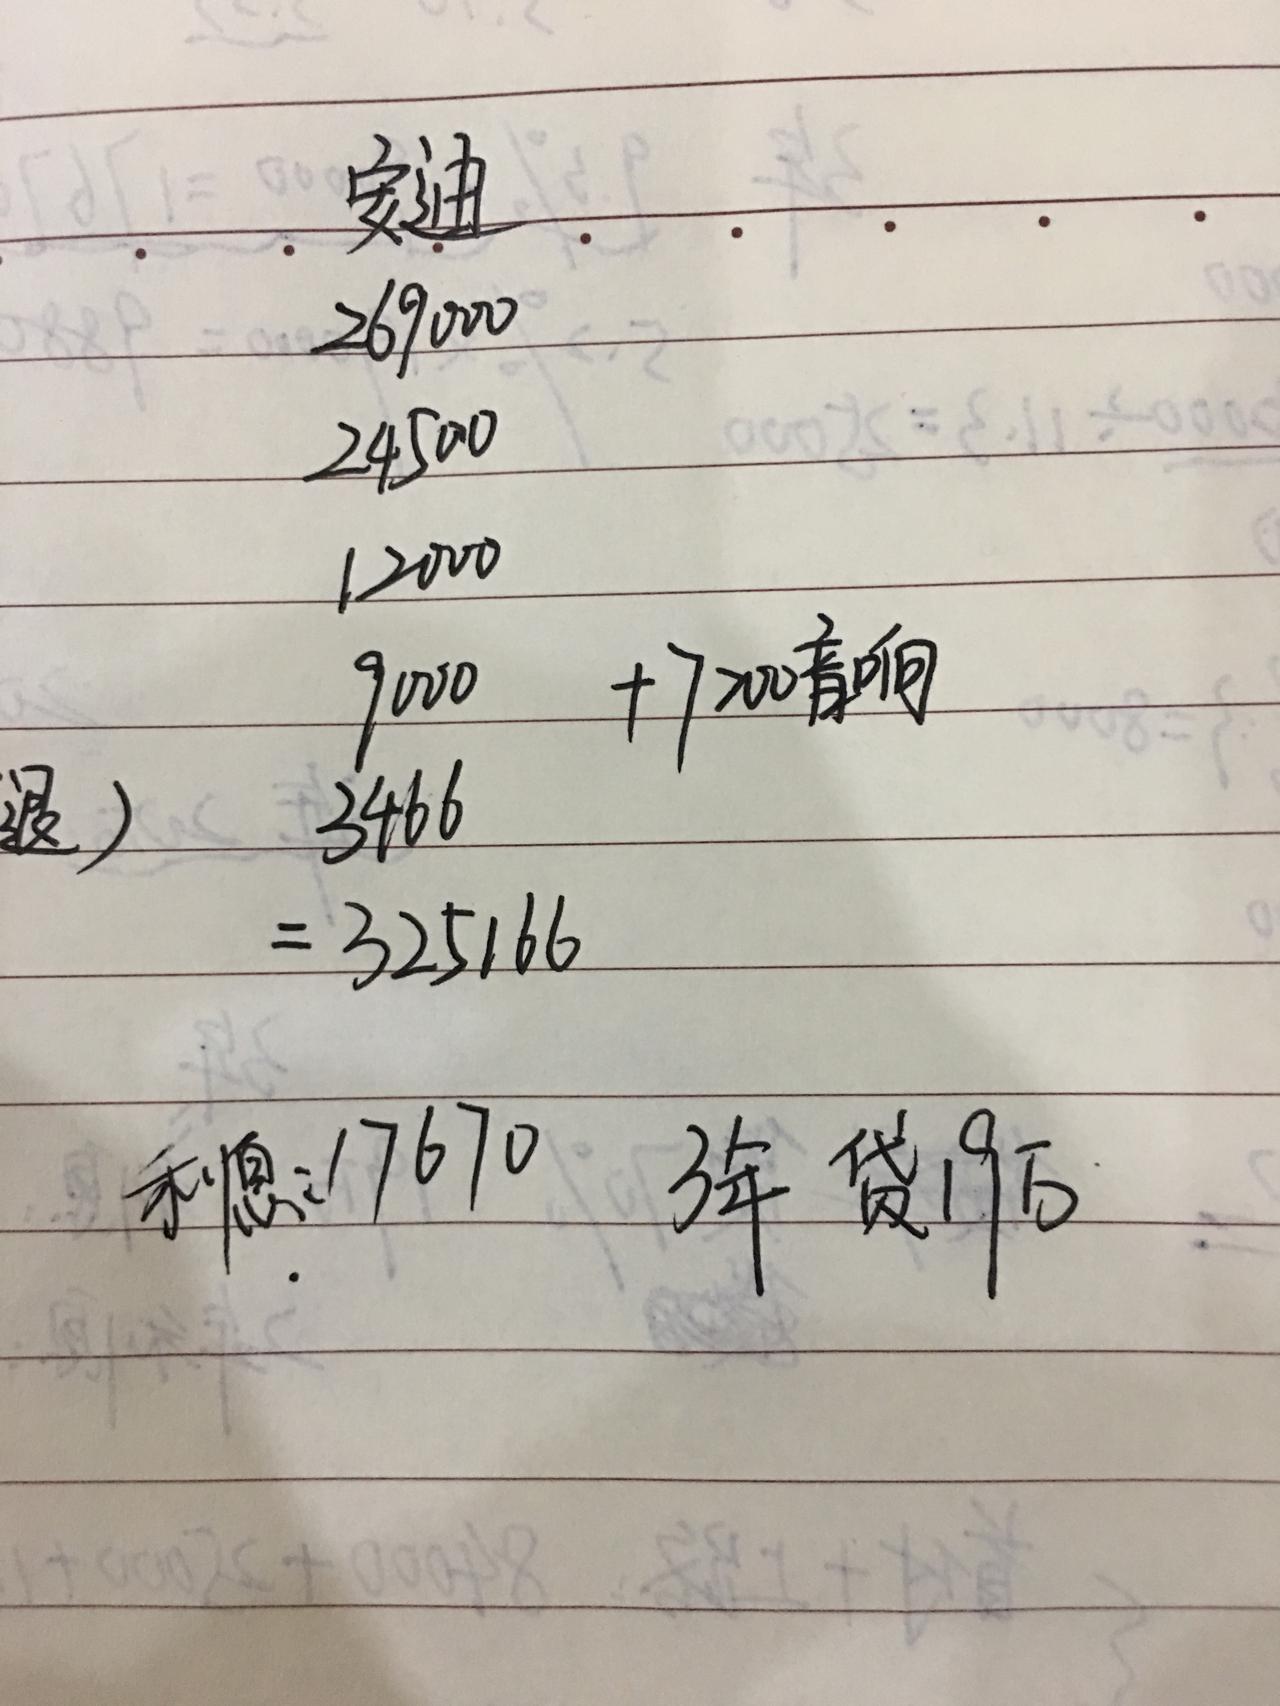 安迪
269000
24500
12000
9000 +7200音响
退) 3466
=325166
利息:17670 3年 贷19万